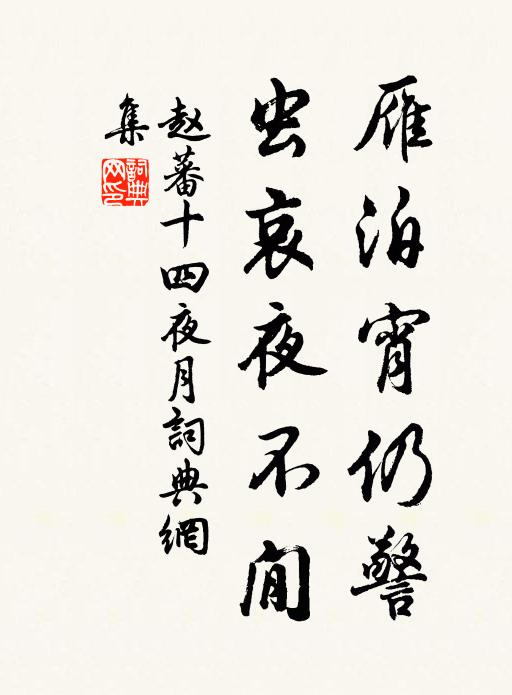 雁泊宵仍警
虫哀夜不闲
赵蕃十四夜月詞典網
集
詞典网印